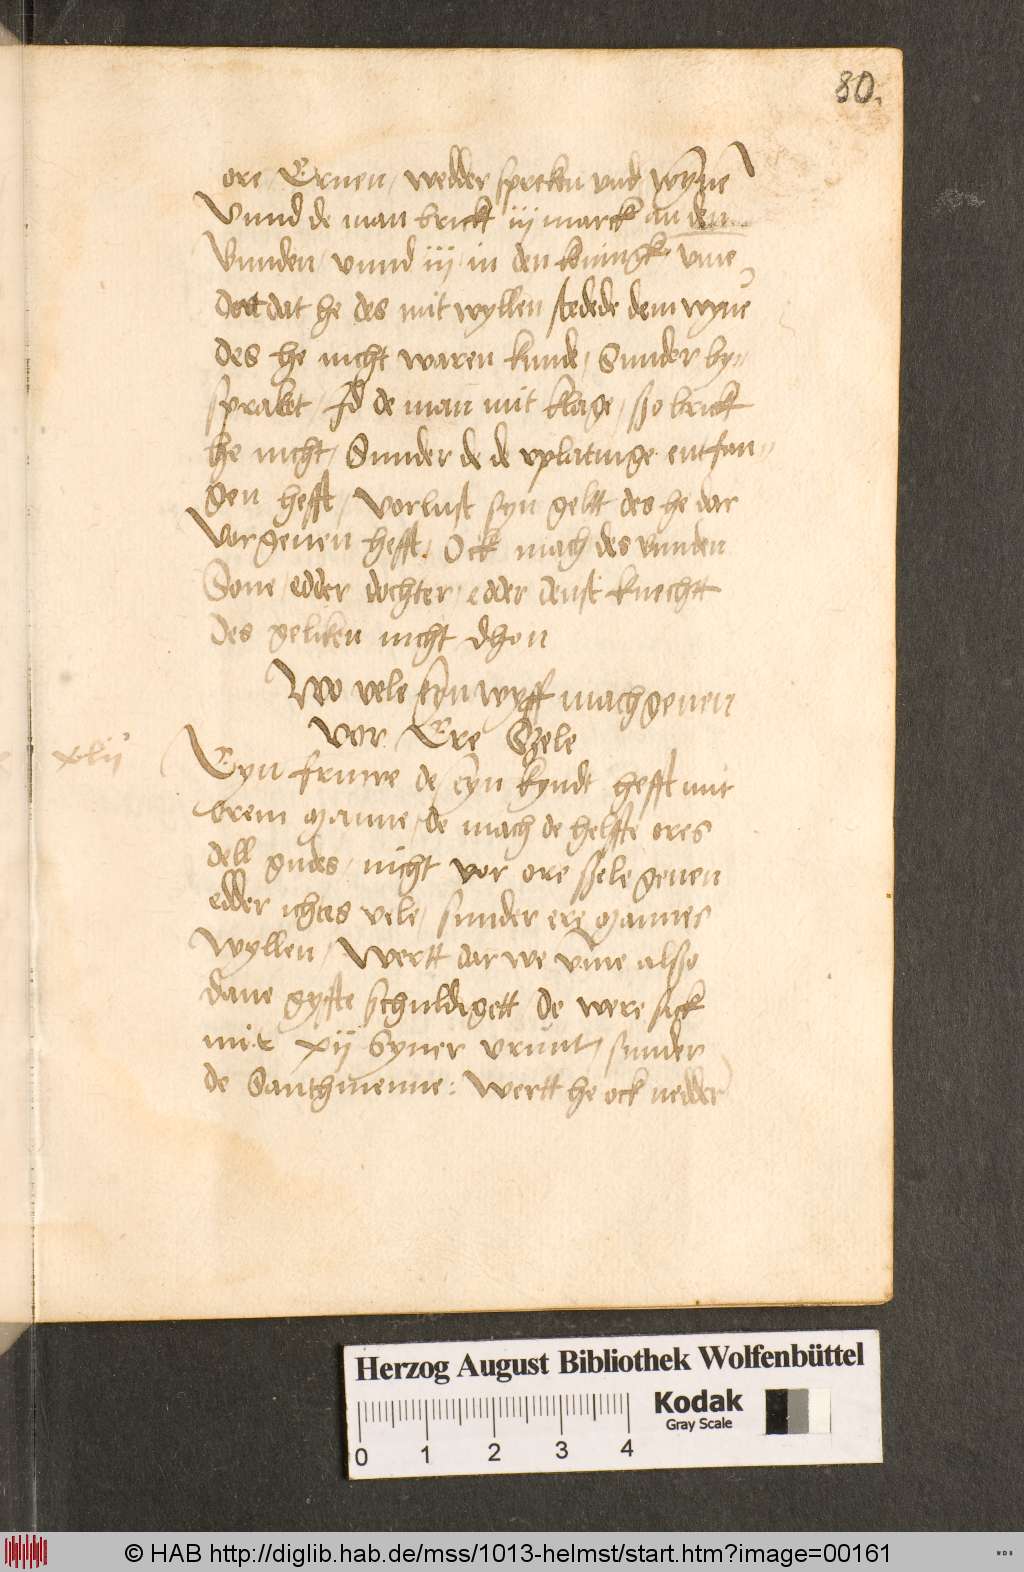 80.
ore Eruen wedder spreken vnd wyne
Vnnd de man brickt iij marck an den
Bunden vnnd iij in den konnigk vme
Dott dat he des mit wyllen stedede dem wyue
des he nicht waren kunde Sunder by-
spraket de man mit klage sso brickt
he nicht Sunder de de vplatinge entfan-
gen hefft vorlust syn geltt des he dar
vor geuen hefft. Ock mach des bunden
Sone edder dochter edder denst knechtt
des geliken nicht dhon
Wo vele eyn wyff mach geuen
vor Ere Szele
xlij
Eyn fruwe de eyn kyndt hefft mit
orem manne de mach de helffte ores
dell gudes nicht vor ore ssele geuen
edder ichtes vele sunder ere mannes
Wyllen Wertt dar we vme alsso
dane gyffte schuldigett de were sick
mit xij Syner vrunt sunder
de Santhmenne: Wertt he ock nedder
Herzog August Bibliothek Wolfenbüttel
0 1 2 3 4
Kodak
Gray Scale
© HAB http://diglib.hab.de/mss/1013-helmst/start.htm?image=00161